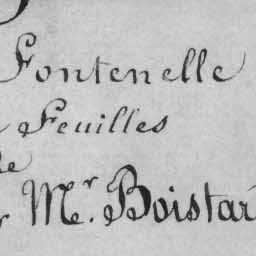 Fontenelle
Feuilles
de
Mr. Boistar